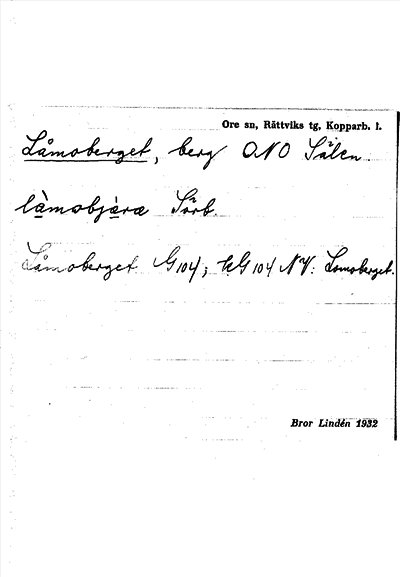 Ore sn, Rättviks tg, Kopparb. l.
Låmoberget, berg ONO Sälen.
làmobjära Sörb.
Låmoberget G104; kG 104 NV: Lomoberget.
Bror Lindén 1932